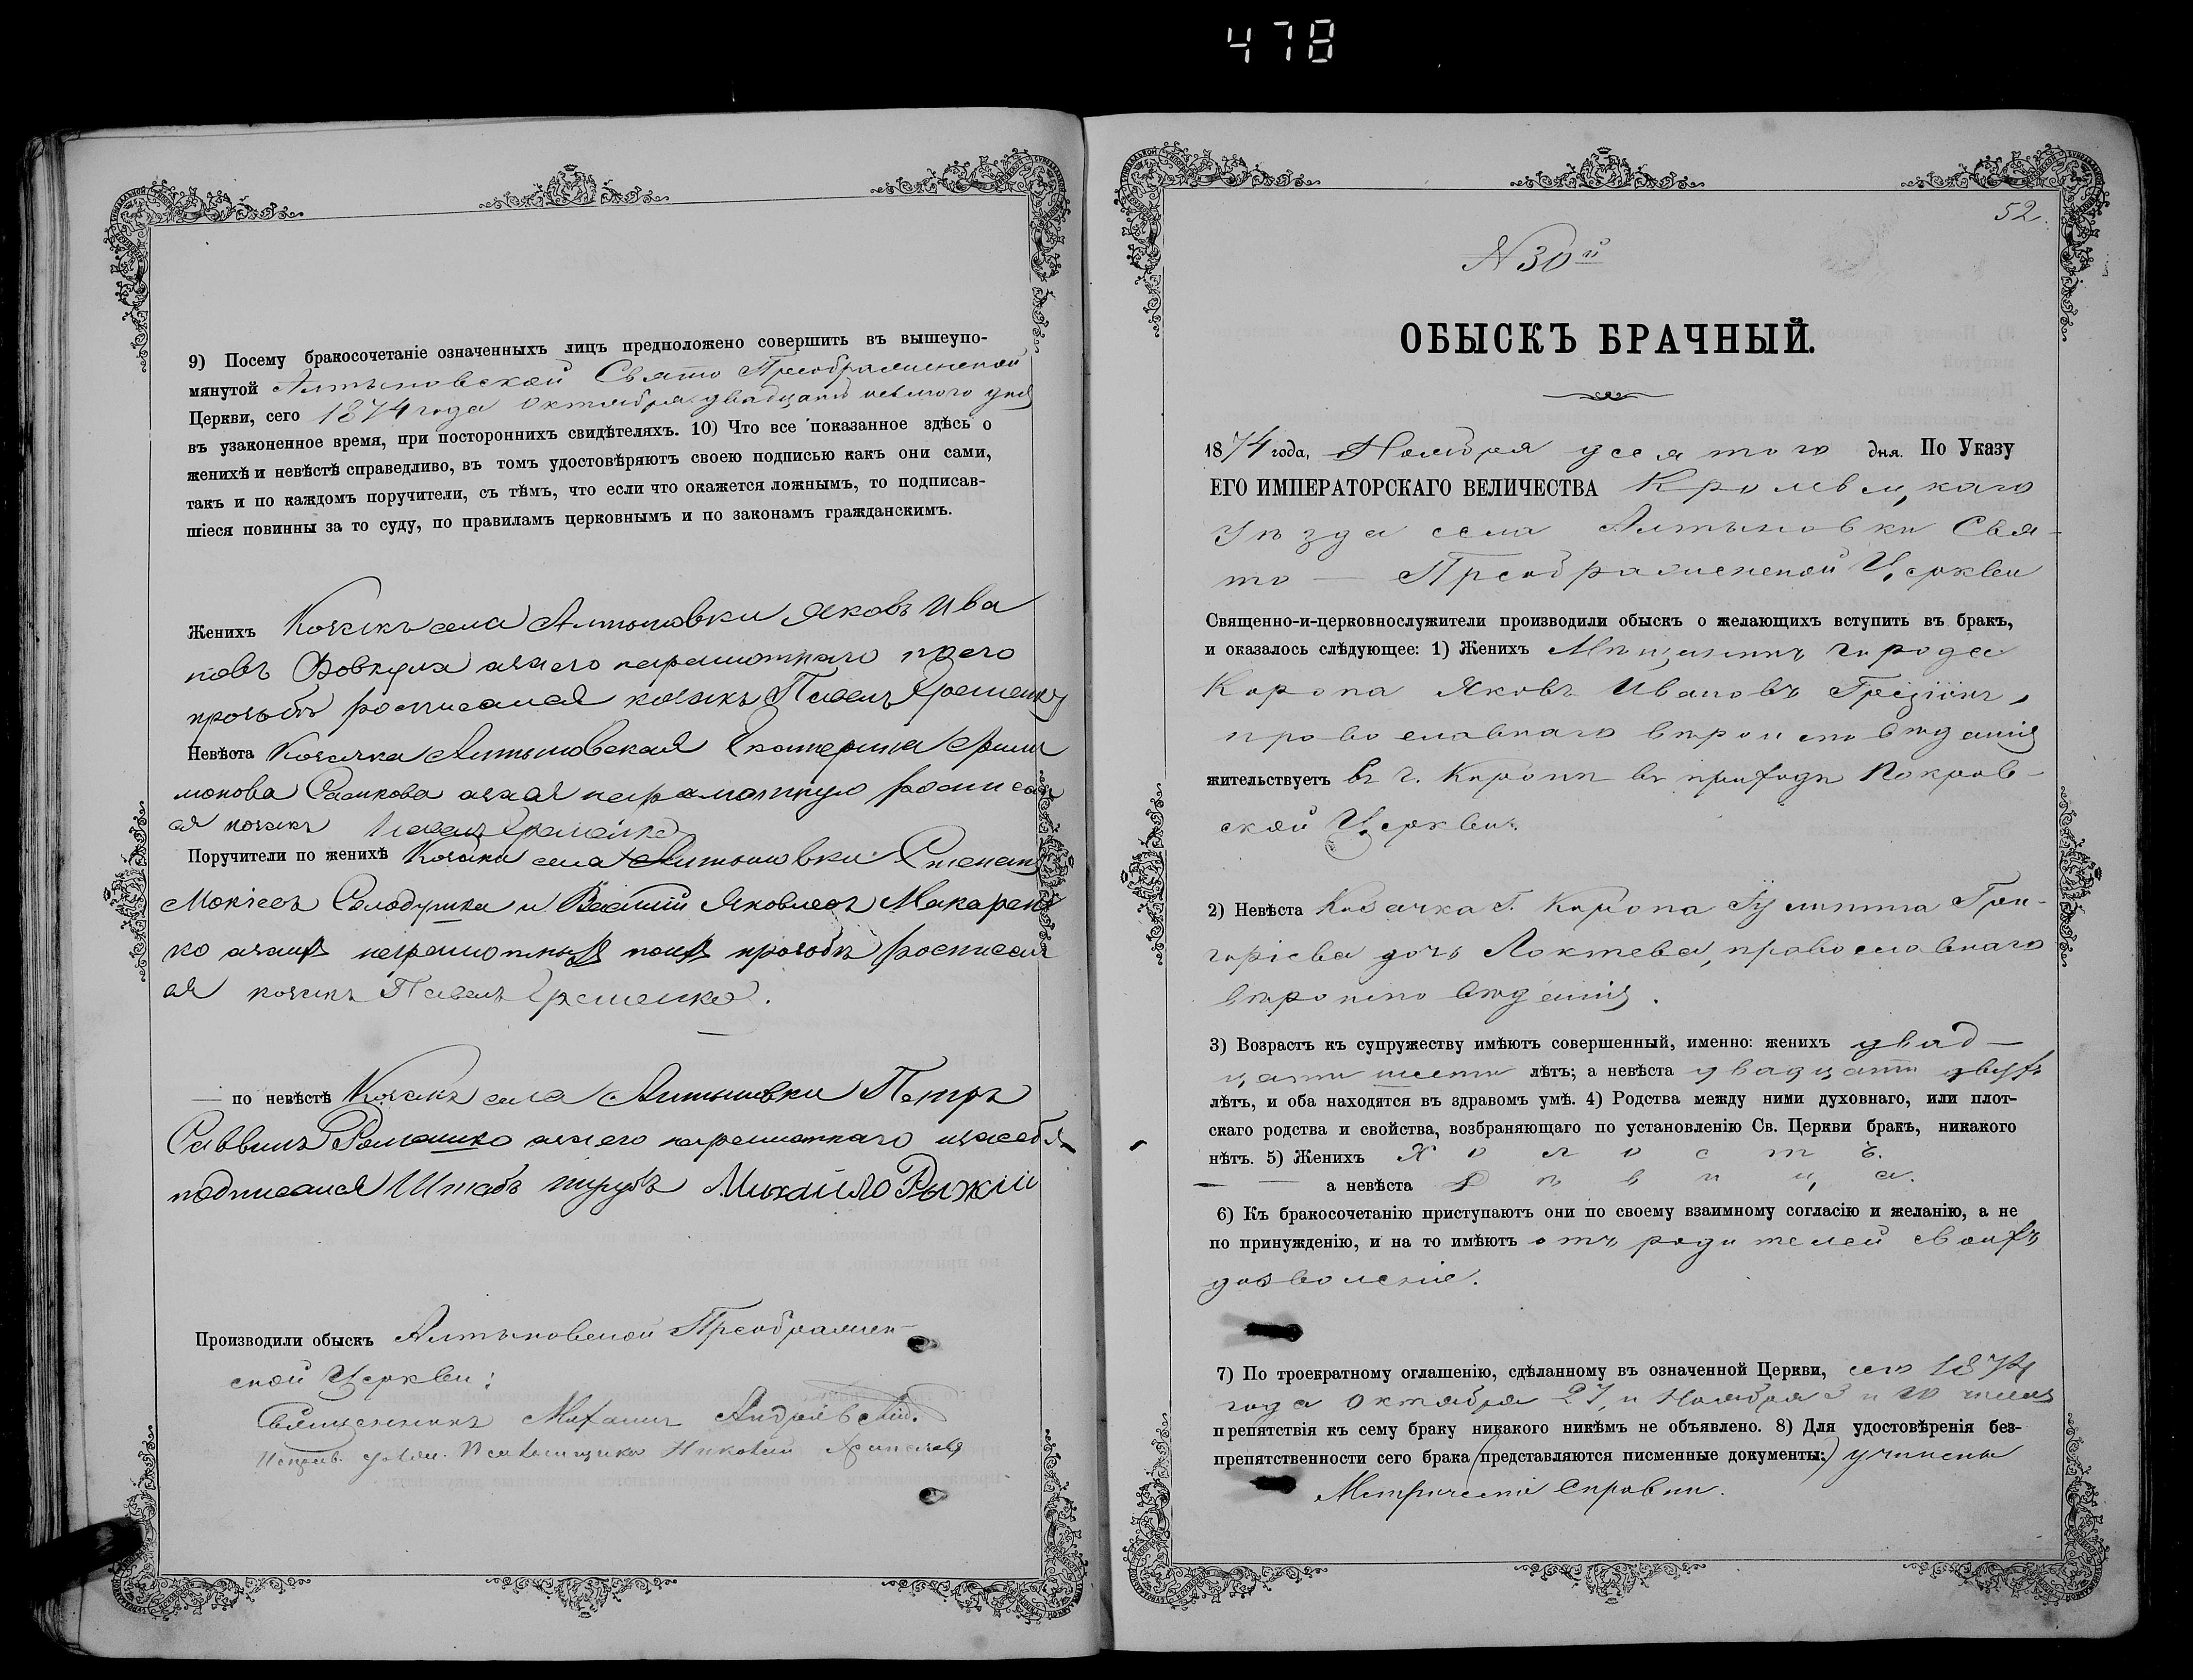 478
9) Посему бракосочетаніе означенныхъ лицъ предположено совершить въ вышеупо-
мянутой Алтыновской Свято Преображенской
Церкви, сего 1874 года Октября двадцать осьмого дня
въ узаконенное время, при постороннихъ свидѣтеляхъ. 10) Что все показанное здѣсь о
женихѣ и невѣстѣ справедливо, въ томъ удостовѣряютъ своею подписью какъ они сами,
такъ и по каждомъ поручители, съ тѣмъ, что если что окажется ложнымъ, то подписав-
шіеся повинны за то суду, по правиламъ церковнымъ и по законамъ гражданскимъ.
Женихъ Козакъ села Алтыновки Яковъ Ива
новъ Вовкула аза его неграмотнаго
прозьбѣ росписался козакъ Павелъ
Невѣста Козачка Алтыновская Екатерина
аза ея неграмотную росписал
ся козакъ Павелъ
Поручители по женихѣ Козаки села Алтыновки Степанъ
Мокіевъ Солодушка и Василій Яковлевъ Макарен
ко азаихъ неграмотныхъ поихъ прозьбѣ росписал
ся козакъ Павелъ
— по невѣстѣ Козакъ села Алтыновки Петръ
Саввинъ Ромашко аза его неграмотнаго изасебя
подписался Штабъ Михайло Рыжій
Производили обыскъ Алтыновской Преображен-
ской Церкви:
Священникъ Михаилъ Андріевскій.
Исправ. долж. Псаломщика Николай
52.
N 30й
ОБЫСКЪ БРАЧНЫЙ.
1874 года, Ноября десятого дня. По Указу
ЕГО ИМПЕРАТОРСКАГО ВЕЛИЧЕСТВА Кролевецкаго
Уѣзда села Алтыновки Свя-
то — Преображенской Церкви
Священно-и-церковнослужители производили обыскъ о желающихъ вступить въ бракъ,
и оказалось слѣдующее: 1) Женихъ Мѣщанинъ города
Коропа Яковъ Ивановъ
православнаго вѣроисповѣданія
жительствуетъ въ г. Коропѣ въ приходѣ Покров-
ской Церкви.
2) Невѣста Козачка г. Коропа Гри-
горіева дочь Локтева, православнаго
вѣроисповѣданія.
3) Возрастъ къ супружеству имѣютъ совершенный, именно: женихъ двад-
цати шести лѣтъ; а невѣста двадцати двухъ
лѣтъ, и оба находятся въ здравомъ умѣ. 4) Родства между ними духовнаго, или плот-
скаго родства и свойства, возбраняющаго по установленію Св. Церкви бракъ, никакого
нѣтъ. 5) Женихъ Холостъ.
— — а невѣста Дѣвица.
6) Къ бракосочетанію приступаютъ они по своему взаимному согласію и желанію, а не
по принужденію, и на то имѣютъ отъ родителей своихъ
дозволеніе.
7) По троекратному оглашенію, сдѣланному въ означенной Церкви, сего 1874
года Октября 27, и Ноября 3 и 10 чиселъ
препятствія къ сему браку никакого никѣмъ не объявлено. 8) Для удостовѣренія без-
препятственности сего брака (представляются писменные документы:) учинены
Метрическіе справки.